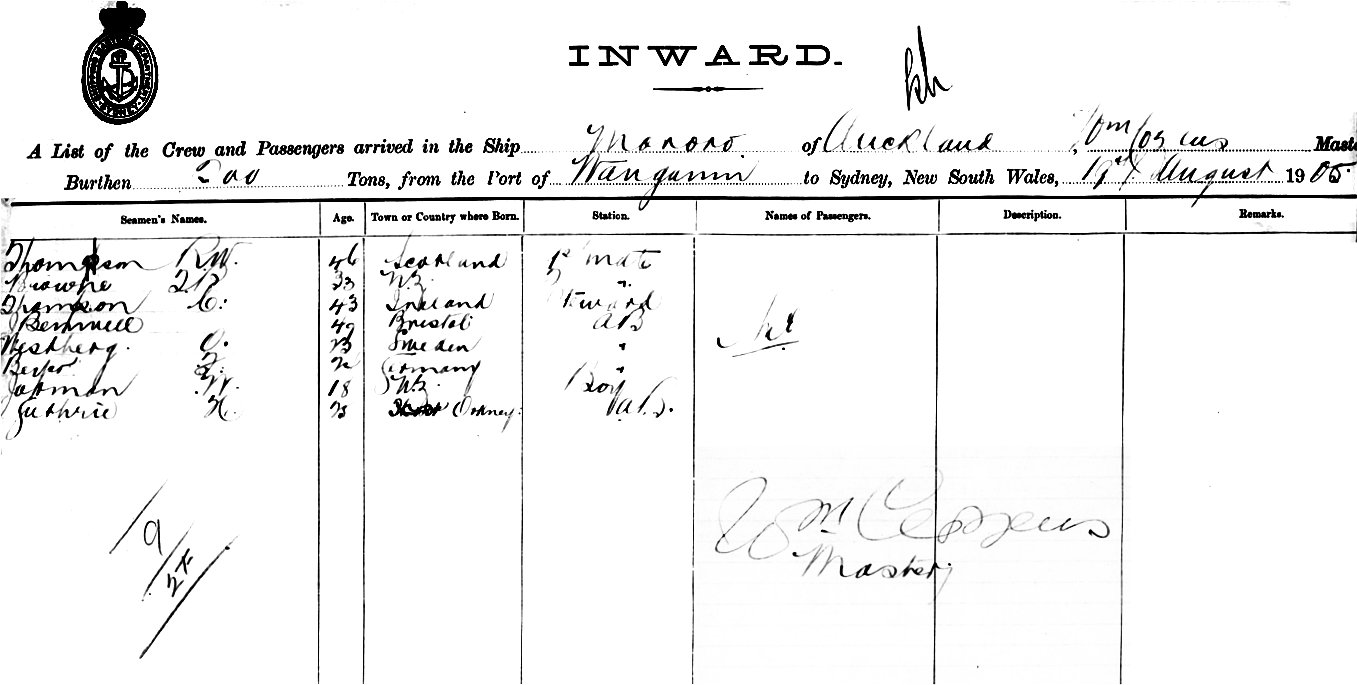 INWARD.
A List of the Crew and Passengers arrived in the Ship Mororo of Auckland Wm Cozens Maste
Burthen 200 Tons, from the Port of Wanganui to Sydney, New South Wales, 19th August 1905.
Seamen's Names. Age. Town or Country where Born. Station. Names of Passengers. Description. Remarks.
Thompson R.W. 46 Scotland Mate
Browne 33 N.Z. "
Thompson C. 43 Ireland Steward
49 Bristol AB
Westberg. O. 23 Sweden "
Germany "
W. 18 N.Z. Boy
Guthrie 23 Orkney. A.B.
Nil
Wm Cozens
Master